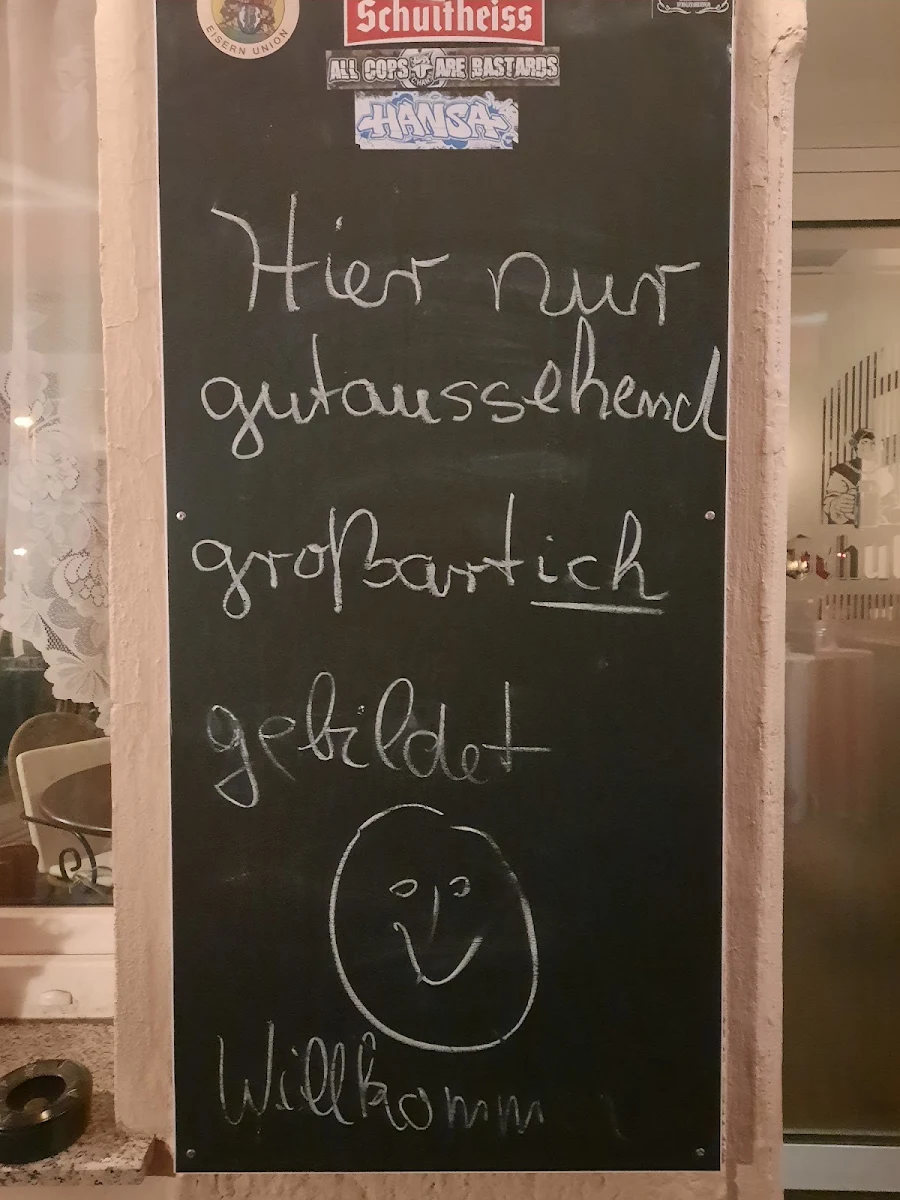 EISERN UNION
Schultheiss
ALL COPS ARE BASTARDS
HANSA
Hier nur
gutaussehend
großartich
gebildet
Willkomm